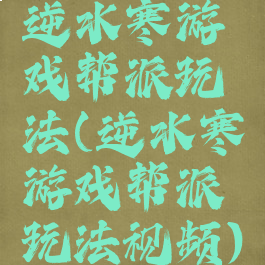 逆水寒游
戏帮派玩
法(逆水寒
游戏帮派
玩法视频)